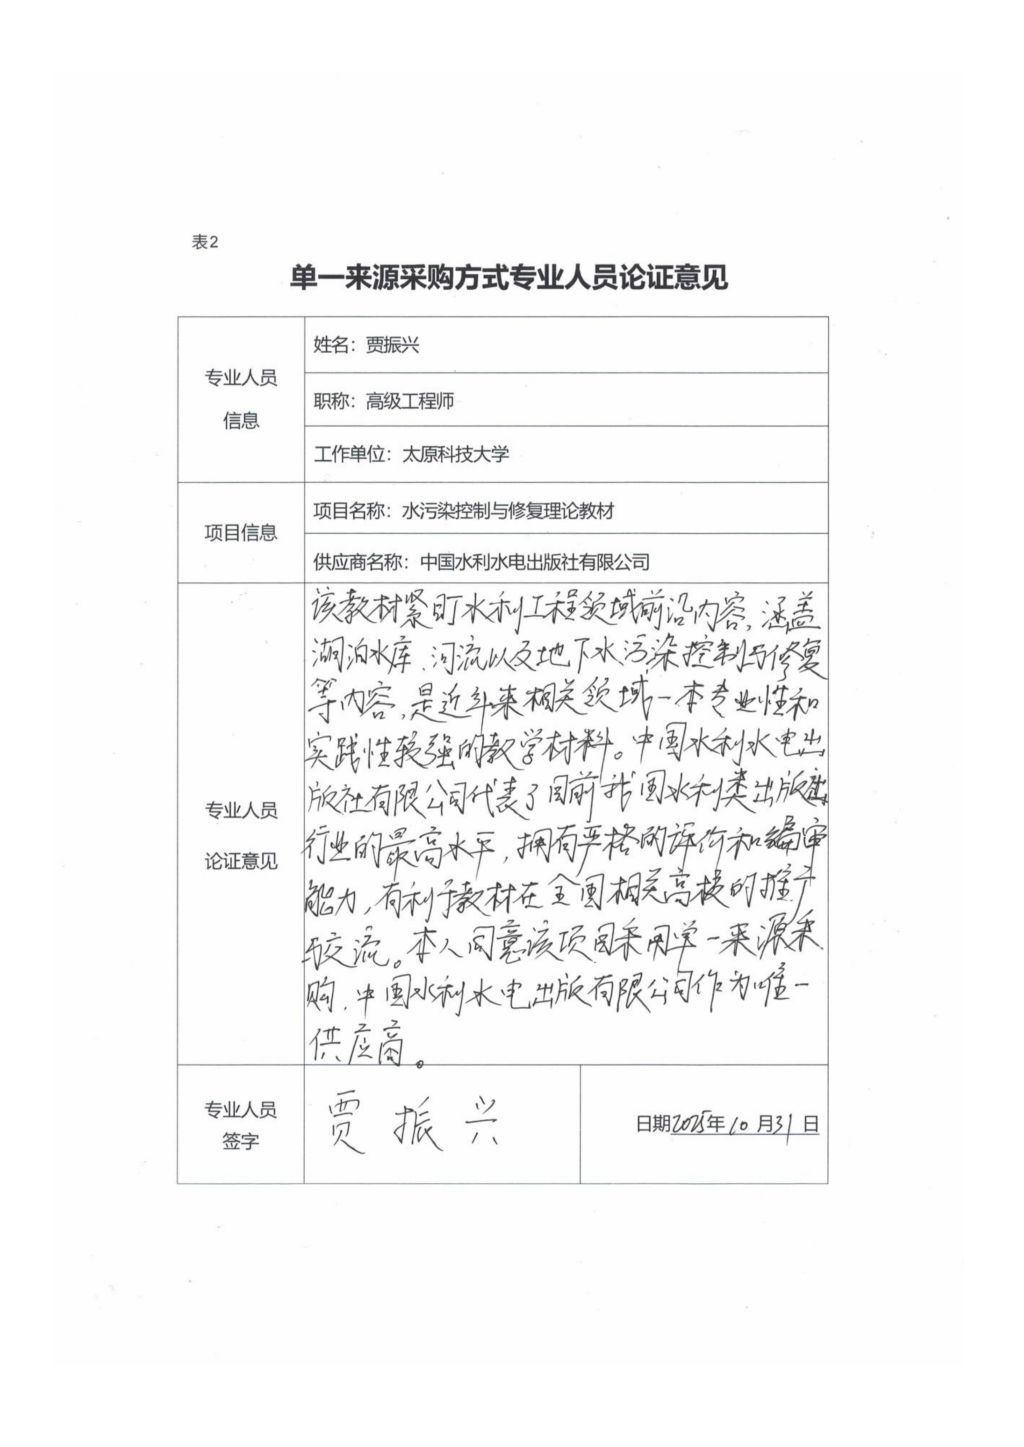 表2
单一来源采购方式专业人员论证意见
专业人员
信息
姓名：贾振兴
职称：高级工程师
工作单位：太原科技大学
项目信息
项目名称：水污染控制与修复理论教材
供应商名称：中国水利水电出版社有限公司
专业人员
论证意见
该教材紧盯水利工程领域前沿内容，涵盖
湖泊水库、河流以及地下水污染控制与修复
等内容，是近年来相关领域一本专业性和
实践性较强的教学材料。中国水利水电出
版社有限公司代表了目前我国水利类出版
行业的最高水平，拥有严格的评价和编审
能力，有利于教材在全国相关高校的推广
与交流。本人同意该项目采用单一来源采
购，中国水利水电出版有限公司作为唯一
供应商。
专业人员
签字
贾振兴
日期2025年10月31日